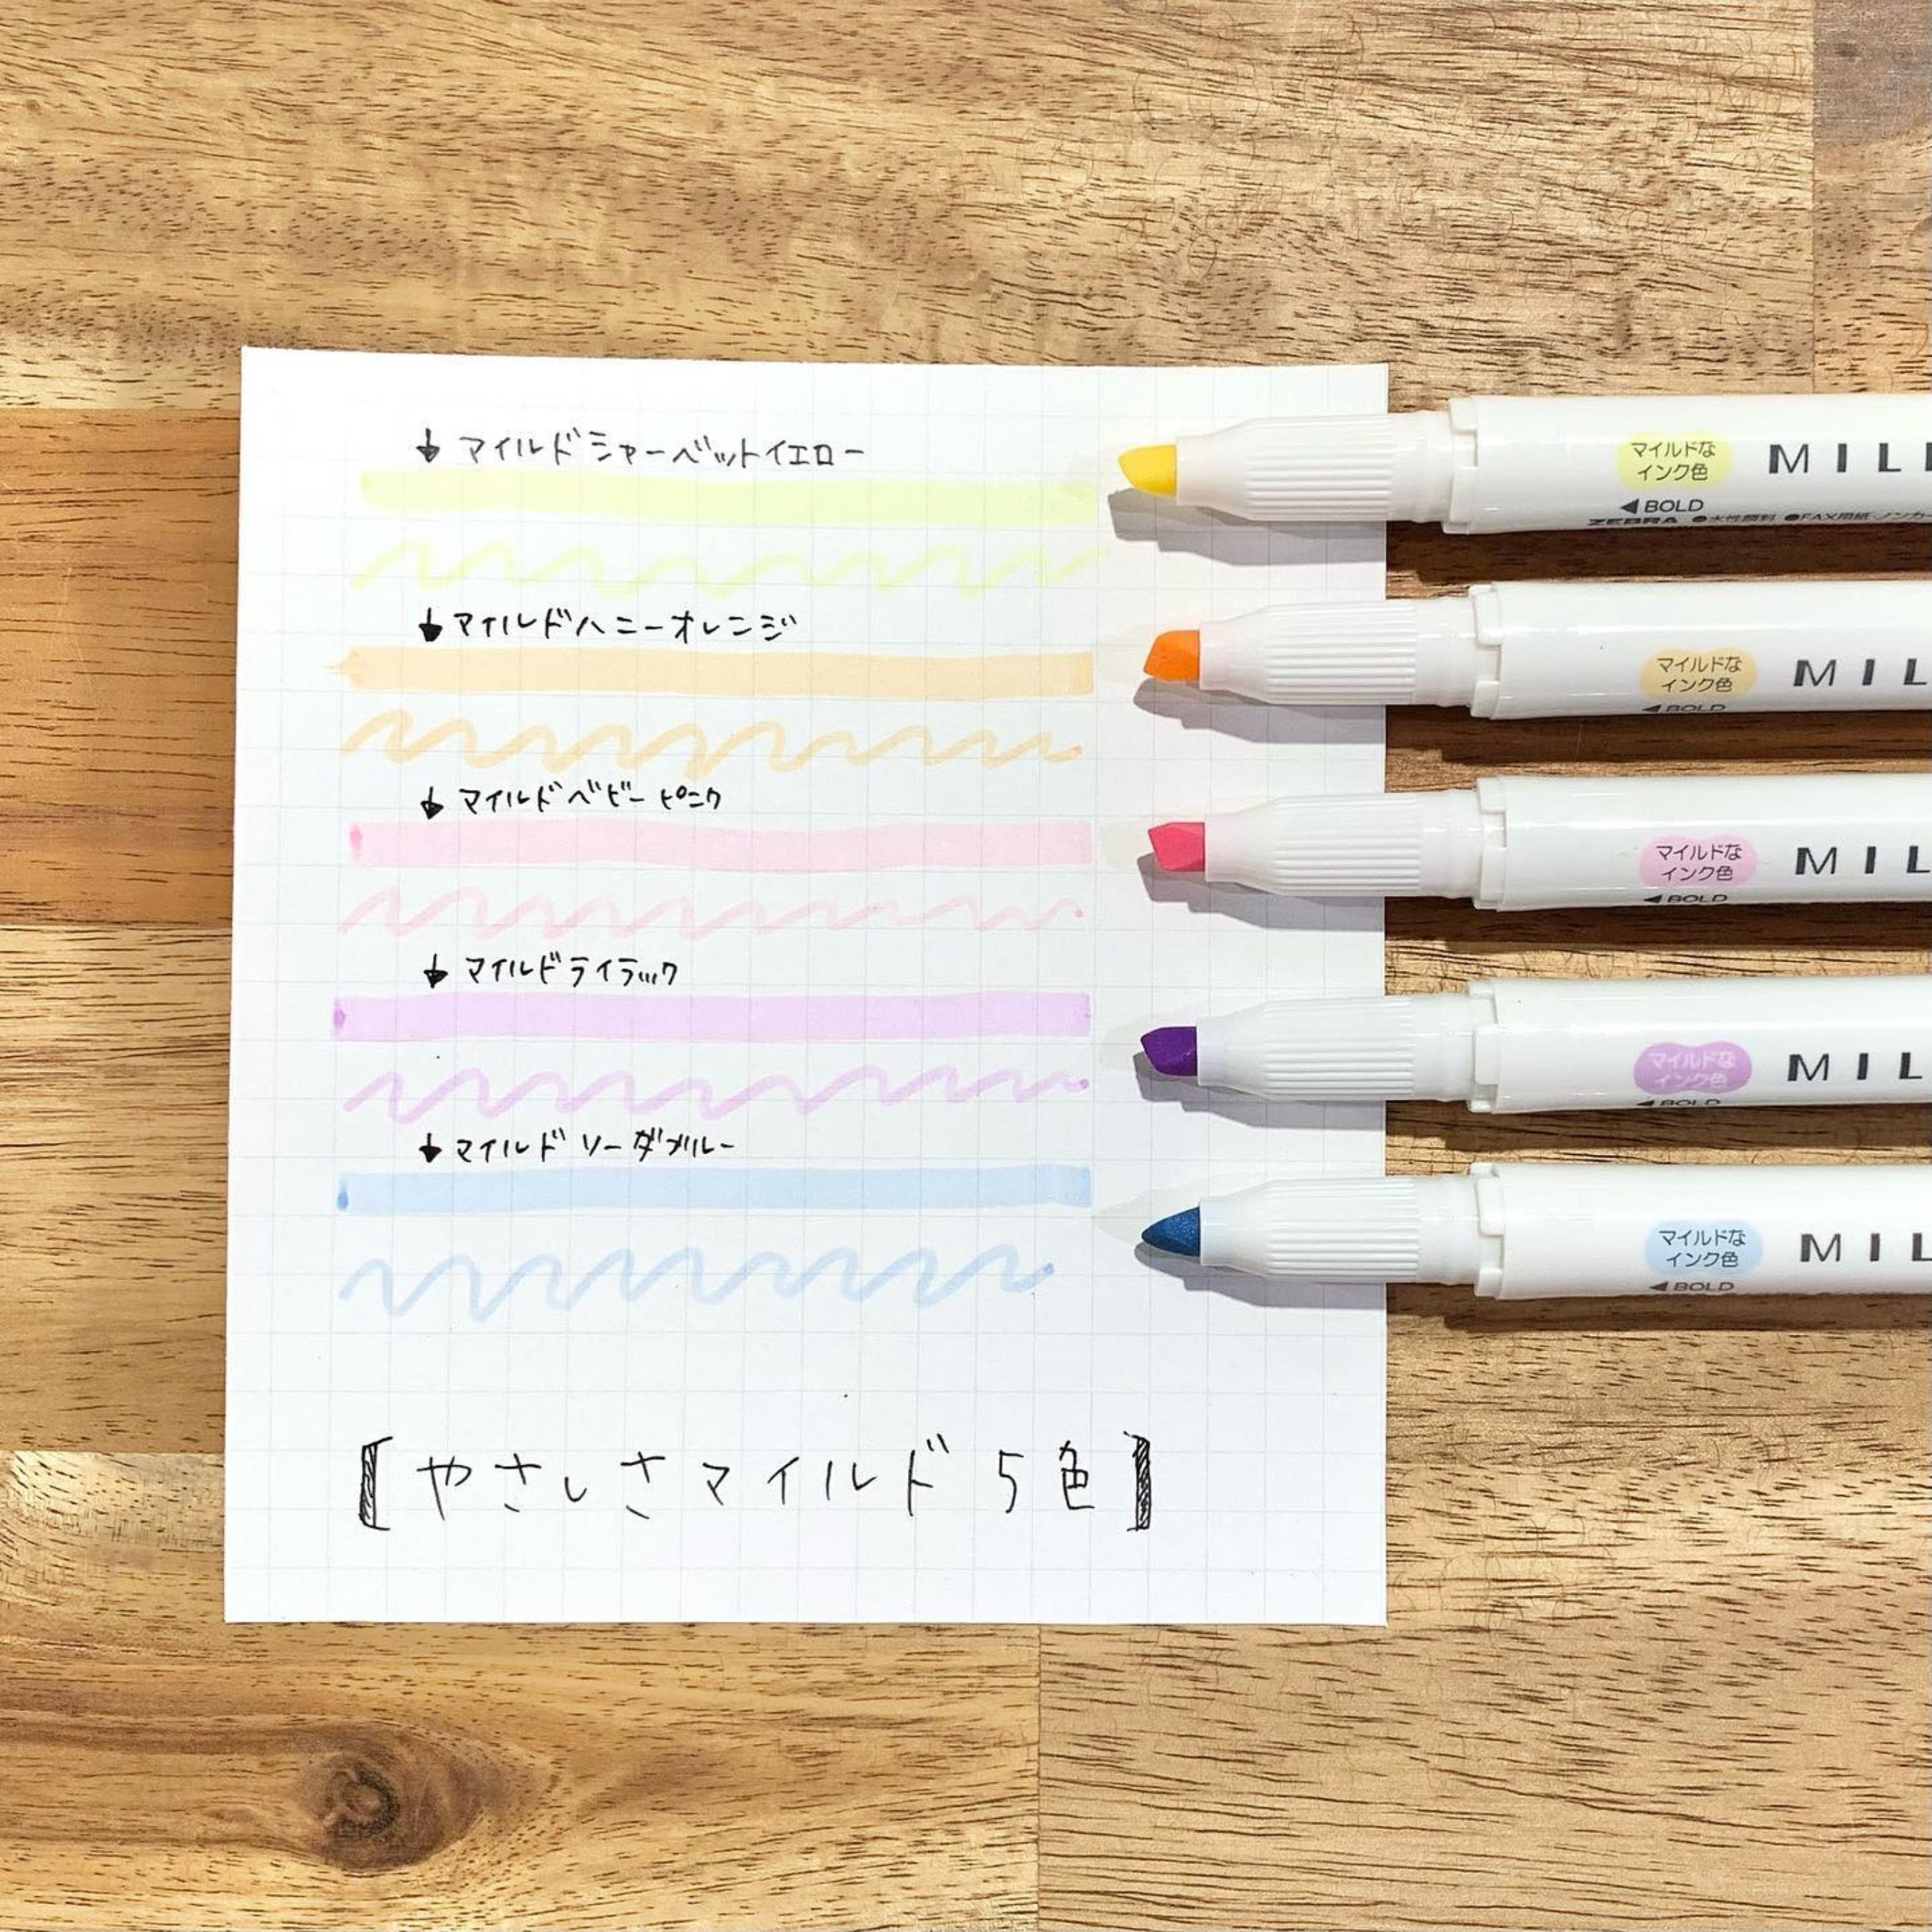 ↓ マイルドシャーベットイエロー
↓ マイルドハニーオレンジ
↓ マイルドベビーピンク
↓ マイルドライラック
↓ マイルドソーダブルー
【やさしさマイルド5色】
マイルドな
インク色
MIL
◀BOLD
ZEBRA ●水性顔料 ●FAX用紙・ノンカー
マイルドな
インク色
MIL
◀BOLD
マイルドな
インク色
MIL
◀BOLD
マイルドな
インク色
MIL
◀BOLD
マイルドな
インク色
MIL
◀BOLD